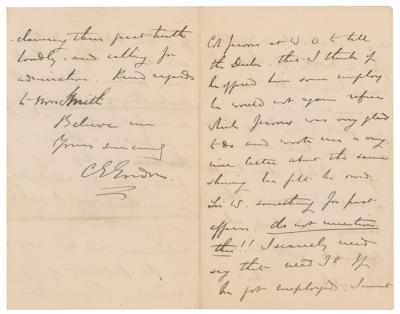 claiming this great truth
loudly, and calling for
admiration. Kind regards
to Mrs Smith
Believe me
Yours sincerely
C. E. Gordon.
Col Jervois at W. O to tell
the Duke. that I think if
he offered him some employ
he would not again refuse
which Jervois was very glad
to do and wrote me a very
nice letter about the same
showing he felt he owed
Sir W. something for past
offices. do not mention
this!! I scarcely need
say that need I? If
he got employed. I must